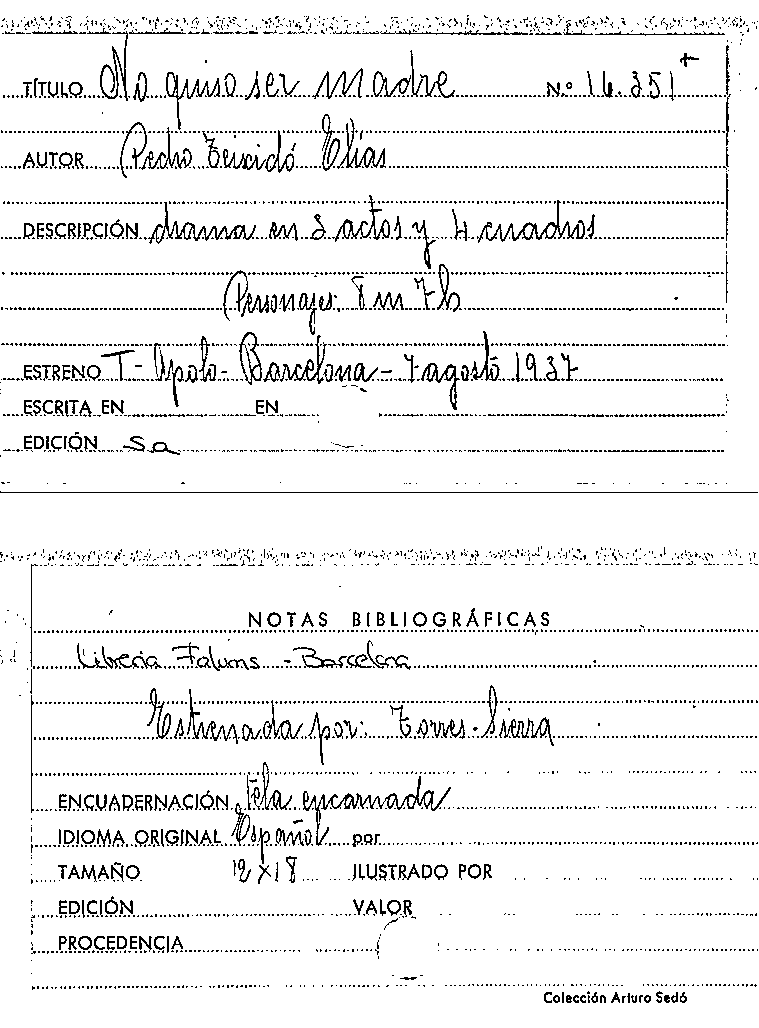 TÍTULO No quiso ser madre N.º 16.351+
AUTOR Pedro Teixidó Elías
DESCRIPCIÓN drama en 3 actos y 4 cuadros
Personajes: 8 m 7 h
ESTRENO T- Apolo- Barcelona - 7 agosto 1937
ESCRITA EN EN
EDICIÓN sa
NOTAS BIBLIOGRÁFICAS
Librería - Barcelona
Estrenada por: Torres-Sierra
ENCUADERNACIÓN tela encarnada
IDIOMA ORIGINAL Español por
TAMAÑO 12 x 18 ILUSTRADO POR
EDICIÓN VALOR
PROCEDENCIA
Colección Arturo Sedó